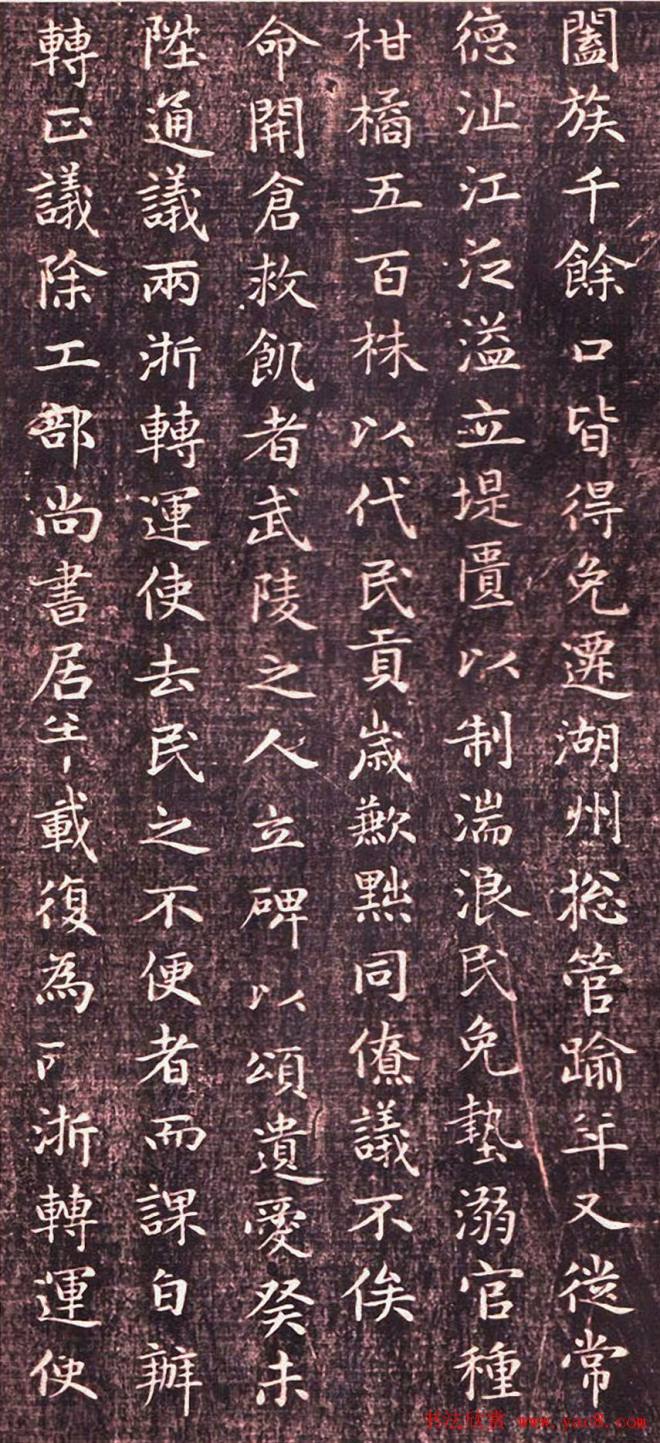 闔族千餘口皆得免遷湖州総管踰年又從常
德沚江泛溢立堤匽以制湍浪民免墊溺官種
柑橘五百株以代民貢歳歉點同僚議不俟
命開倉救飢者武陵之人立碑以頌遺愛癸未
陞通議兩浙轉運使去民之不便者而課自辦
轉正議除工部尚書居半載復為兩浙轉運使
书法欣赏 www.yac8.com